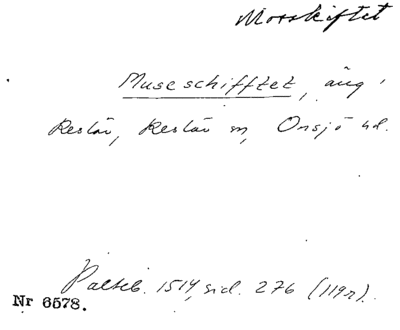 Mosskiftet
Museschifftet, äng,
Restär, Restär sn, Onsjö hd.
Palteb. 1514, sid. 276 (119r).
Nr 6578.